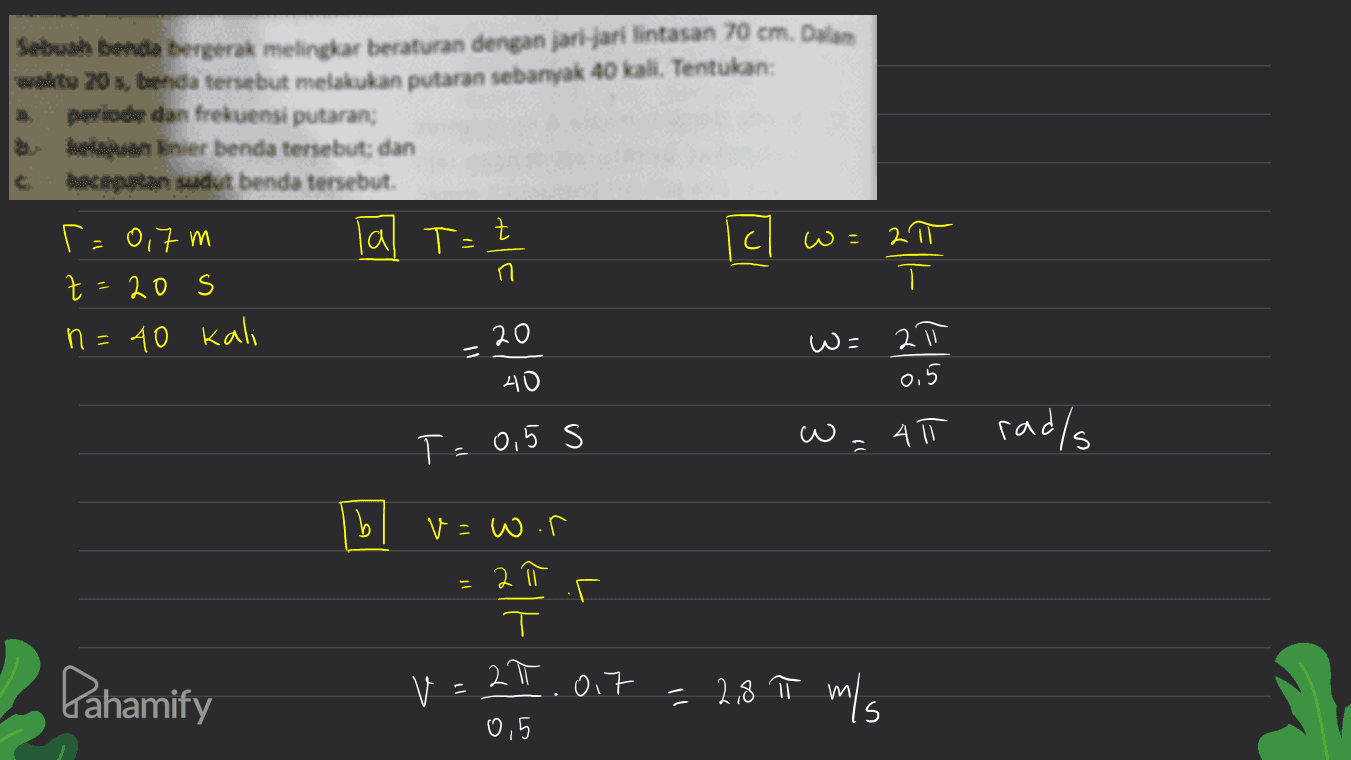 Sebuah benda bergerak melingkar beraturan dengan jari-jari lintasan 70 cm. Dalam
waktu 20 s, benda tersebut melakukan putaran sebanyak 40 kali. Tentukan:
a. periode dan frekuensi putaran;
b. kelajuan linier benda tersebut; dan
c. kecepatan sudut benda tersebut.
r = 0,7 m
t = 20 s
n = 40 kali
a T = t/n
= 20/40
T = 0,5 s
b v = ω.r
= 2π/T .r
v = 2π/0,5 . 0,7 = 2,8 π m/s
c ω = 2π/T
ω = 2π/0,5
ω = 4π rad/s
Pahamify